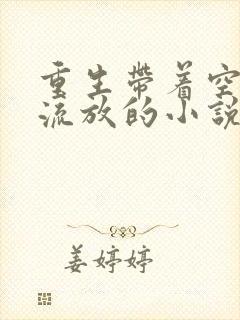 重生帶着空
流放的小說
姜婷婷